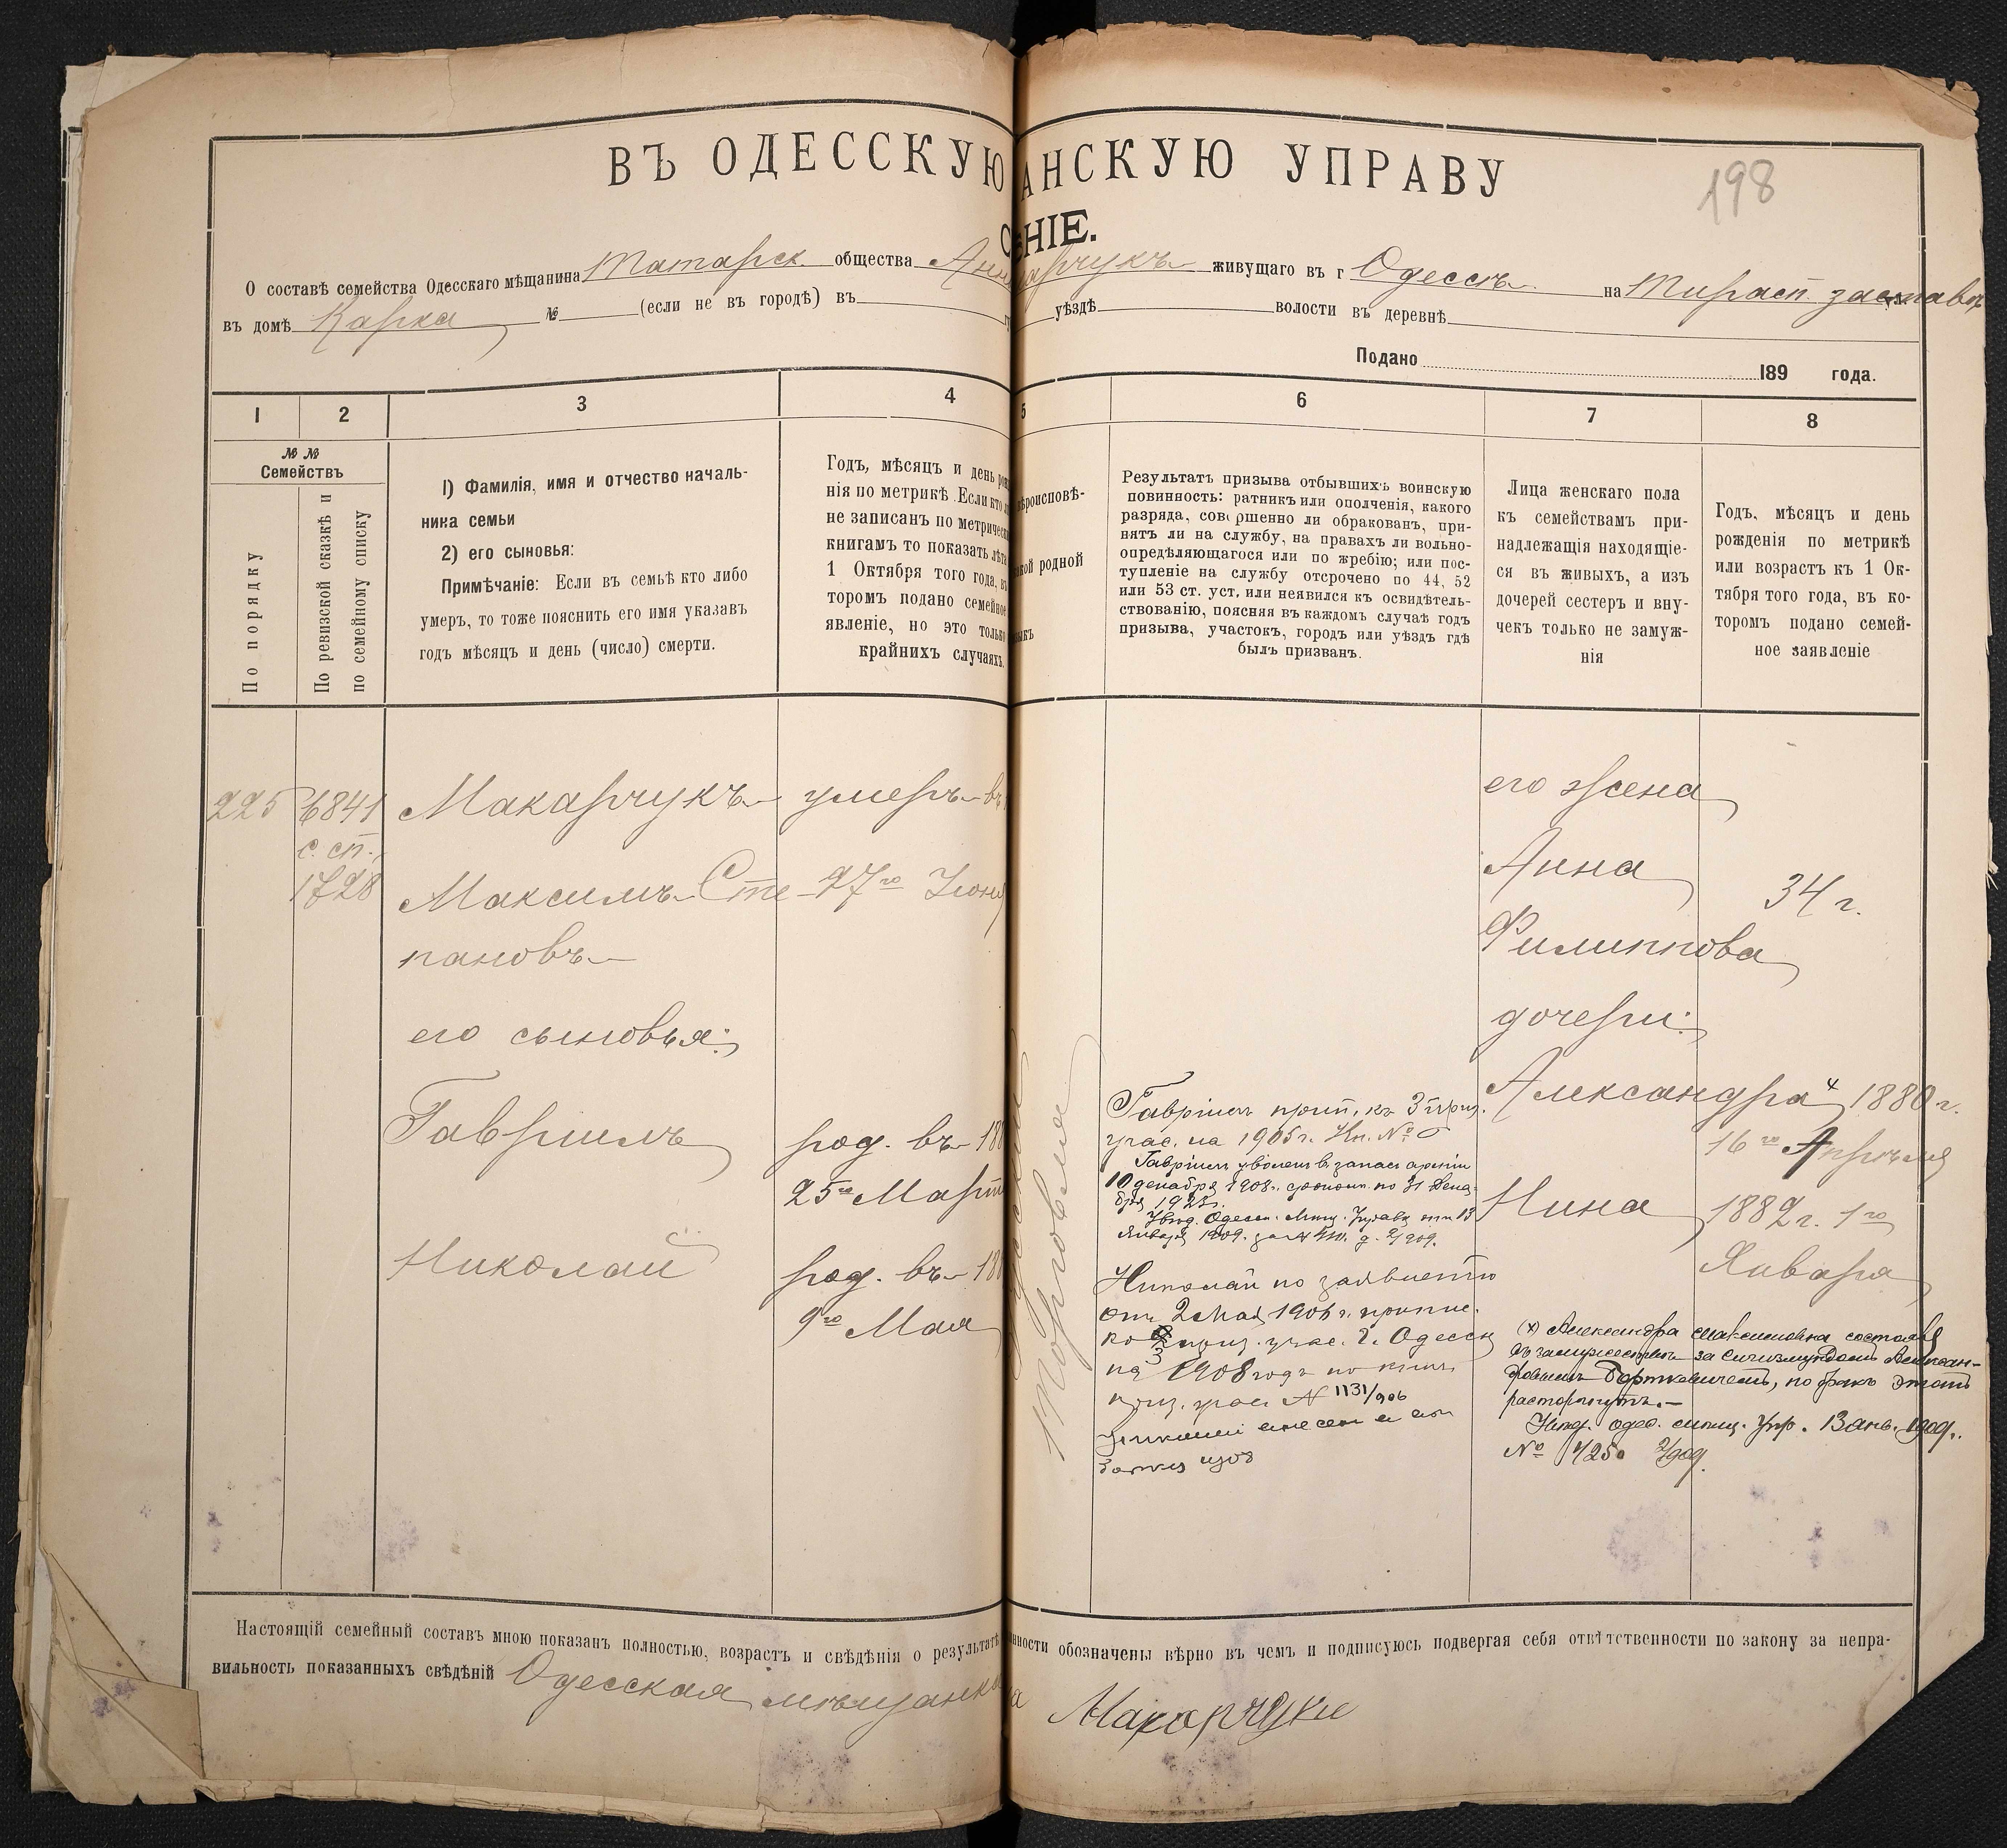 ВЪ ОДЕССКУЮ АНСКУЮ УПРАВУ
198
НІЕ.
О составѣ семейства Одесскаго мѣщанина Татарск. общества живущаго въ г Одессѣ на Тирасп. заставѣ
въ домѣ № (если не въ городѣ) въ уѣздѣ волости въ деревнѣ
Подано 189 года.
1 2 3 4 5 6 7 8
№ №
Семействъ
По порядку
По ревизской сказкѣ и
по семейному списку
1) Фамилія, имя и отчество началь-
ника семьи
2) его сыновья:
Примѣчаніе: Если въ семьѣ кто либо
умеръ, то тоже пояснить его имя указавъ
годъ мѣсяцъ и день (число) смерти.
Годъ, мѣсяцъ и день рож
нія по метрикѣ. Если кто
не записанъ по метрическ
книгамъ то показать лѣта
1 Октября того года, въ
торомъ подано семейное
явленіе, но это только
крайнихъ случаяхъ.
ѣроисповѣ-
кой родной
зыкъ
Результатъ призыва отбывшихъ воинскую
повинность: ратникъ или ополченія, какого
разряда, совершенно ли обракованъ, при-
нятъ ли на службу, на правахъ ли вольно-
опредѣляющагося или по жребію; или пос-
тупленіе на службу отсрочено по 44, 52
или 53 ст. уст. или неявился къ освидѣтель-
ствованію, поясняя въ каждомъ случаѣ годъ
призыва, участокъ, городъ или уѣздъ гдѣ
былъ призванъ.
Лица женскаго пола
къ семействамъ при-
надлежащія находящіе-
ся въ живыхъ, а изъ
дочерей сестеръ и вну-
чекъ только не замуж-
нія
Годъ, мѣсяцъ и день
рожденія по метрикѣ
или возрастъ къ 1 Ок-
тября того года, въ ко-
торомъ подано семей-
ное заявленіе
225 6841
с. сп.
1728
Макарчукъ
Максимъ Сте
пановъ
его сыновья:
Гавриилъ
Николай
умеръ въ
27го Іюня
род. въ 188
25го Март
род. въ 188
9го Мая
Торговля
Гавріилъ прип. къ 3 приз.
учас. на 1905 г. Кн. №
Гавріилъ уволенъ въ запасъ арміи
10 декабря 1908 г. по 31 Дека-
бря 1923 г.
Увѣд. Одесск. Мѣщ. Управы отъ 13
Января 1909.
Николай по заявленію
отъ 2 Мая 1906 г. припис.
ко 3 приз. учас. г. Одессы
на 1908 годъ по
приз. учас № 1131/906
его жена
Анна
Филиппова
34 г.
дочери:
Александра х 1880 г.
16го Апрѣля
Нина 1882 г. 1го
Января
(х) Александра Максимовна состояла
въ замужествѣ за Сигизмундомъ Алексан-
дровичемъ Борткевичемъ, но бракъ этотъ
расторгнутъ.—
Увѣд. Одес. мѣщ. Упр. 13 янв. 1909 г.
№ 4250 2/909.
Настоящій семейный составъ мною показанъ полностью, возрастъ и свѣдѣнія о результатѣ нности обозначены вѣрно въ чемъ и подписуюсь подвергая себя отвѣтственности по закону за непра-
вильность показанныхъ свѣдѣній Одесская мѣщанка Макарчуки